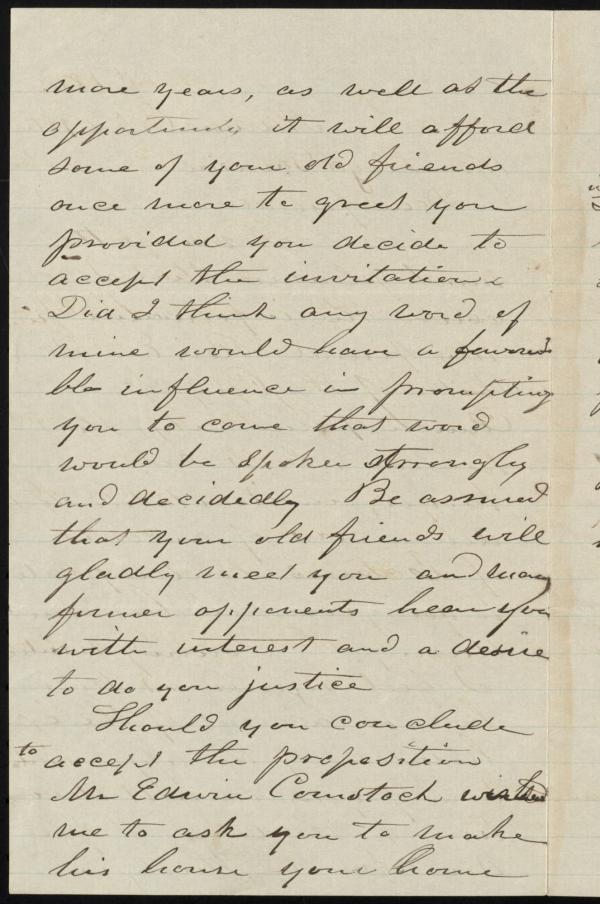 more years, as well as the
opportunity it will afford
some of your old friends
once more to greet you
provided you decide to
accept the invitation.
Did I think any word of
mine would have a favora
ble influence in prompting
you to come that word
would be spoken strongly
and decidedly Be assured
that your old friends will
gladly meet you and many
former opponents hear you
with interest and a desire
to do you justice
Should you conclude
to accept the proposition
Mr Edwin Comstock wished
me to ask you to make
his house your home